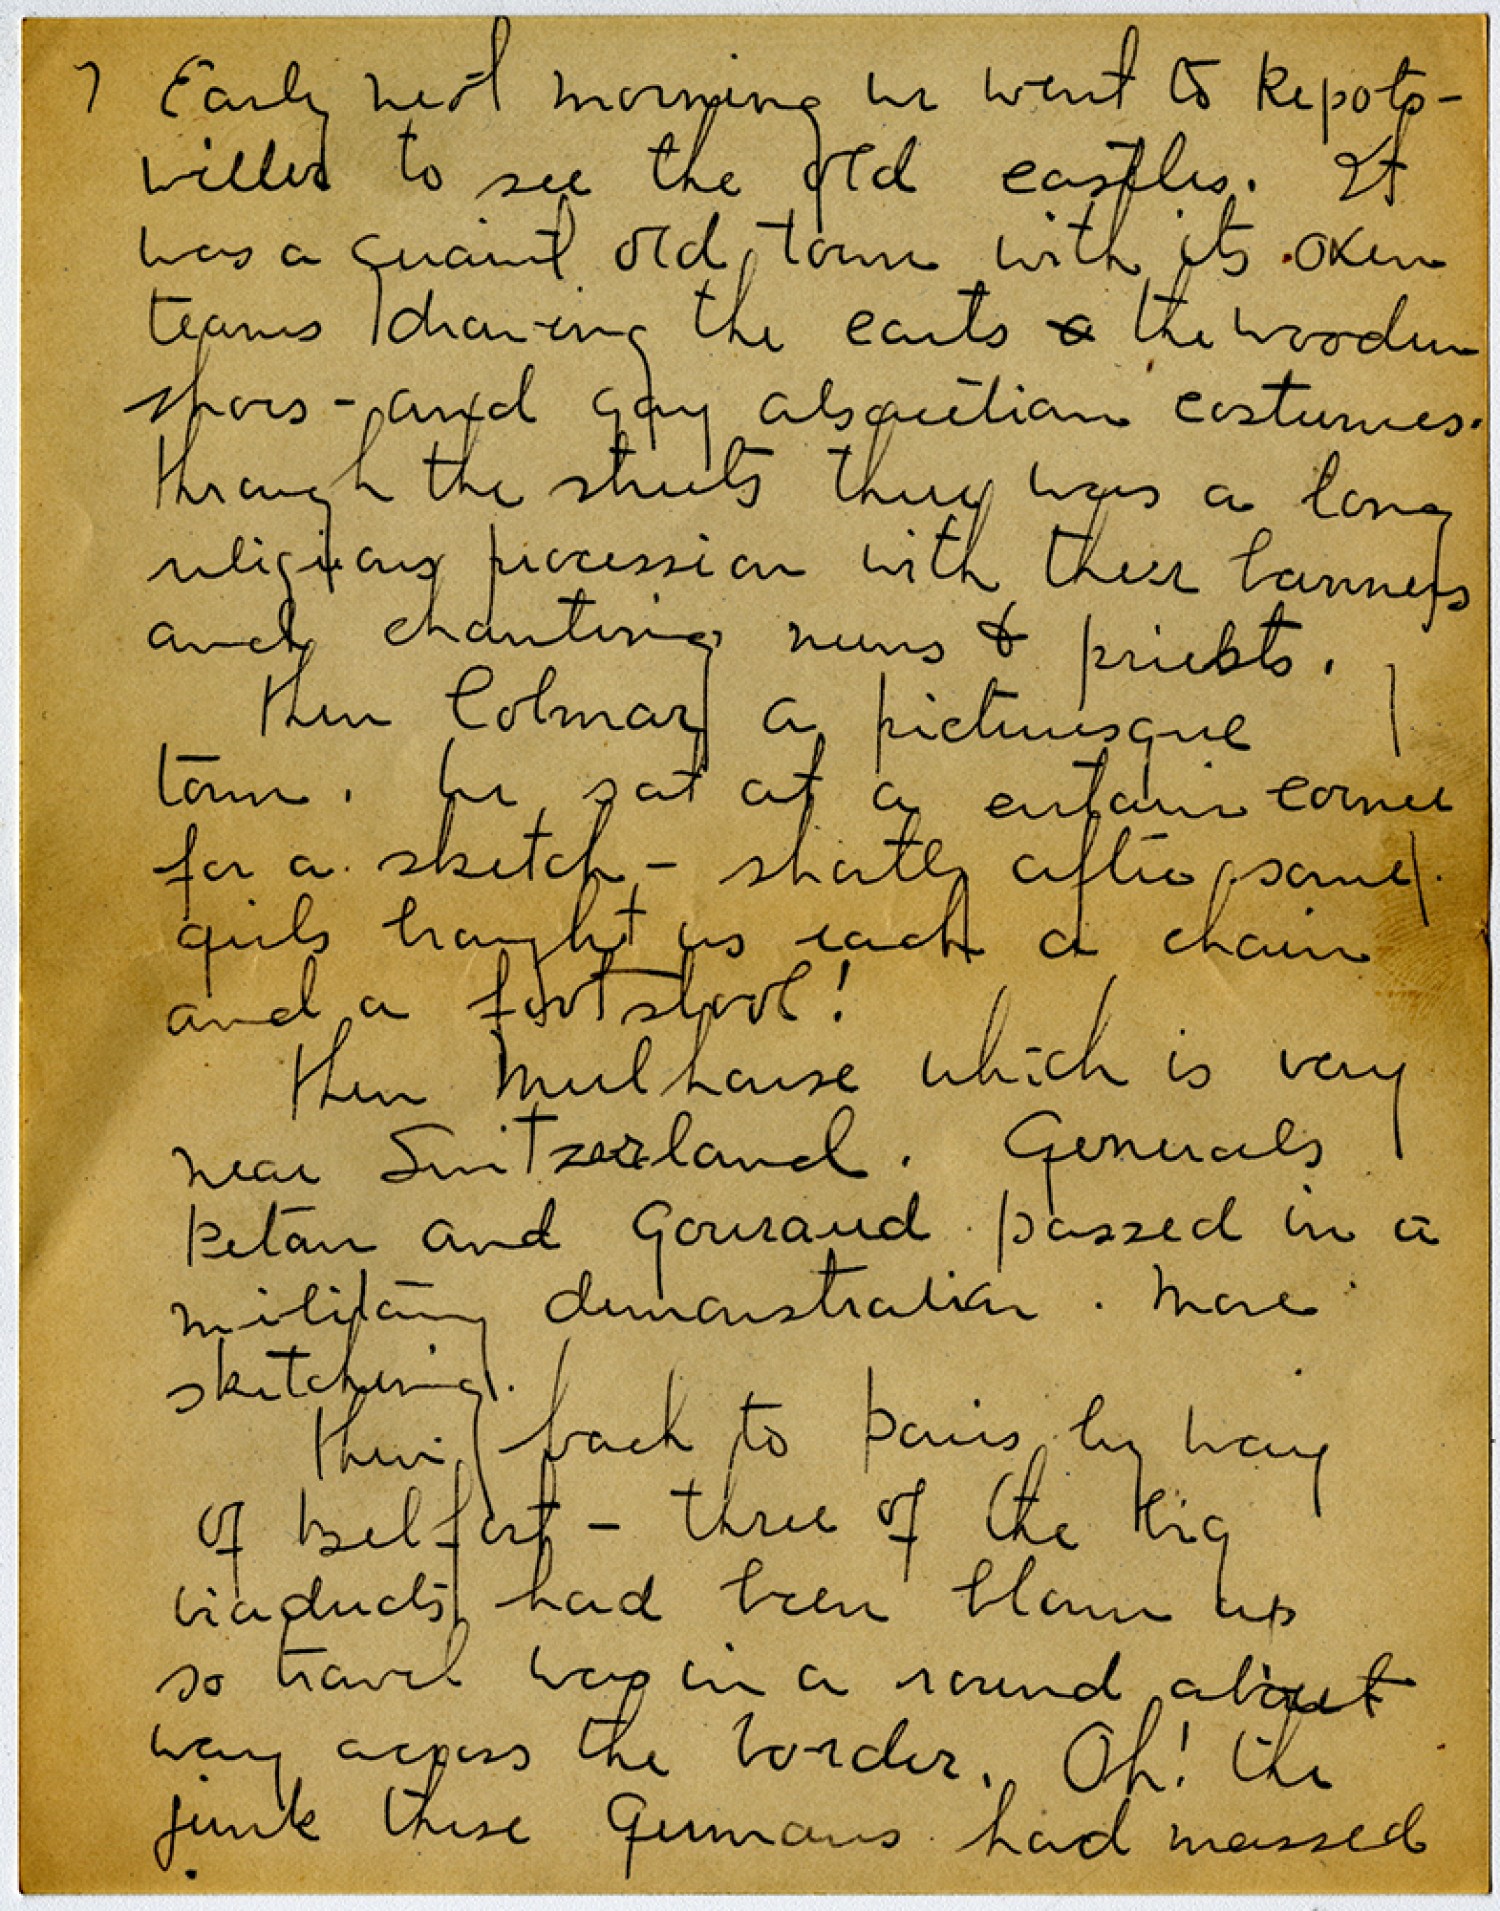 7 Early next morning we went to Repots-
willer to see the old castles. It
was a quaint old town with its oxen
teams drawing the carts & the wooden
shoes - and gay alsacian costumes.
Through the streets there was a long
religious procession with their banners
and chanting nuns & priests.
Then Colmar a picturesque
town. We sat at a certain corner
for a sketch - shortly after some
girls brought us each a chair
and a footstool!
Then Mulhouse which is very
near Switzerland. Generals
Petan and Gouraud passed in a
military demonstration. More
sketching.
Then back to Paris by way
of Belfort - three of the big
viaducts had been blown up
so travel was in a round about
way across the border. Oh! the
junk these Germans had massed